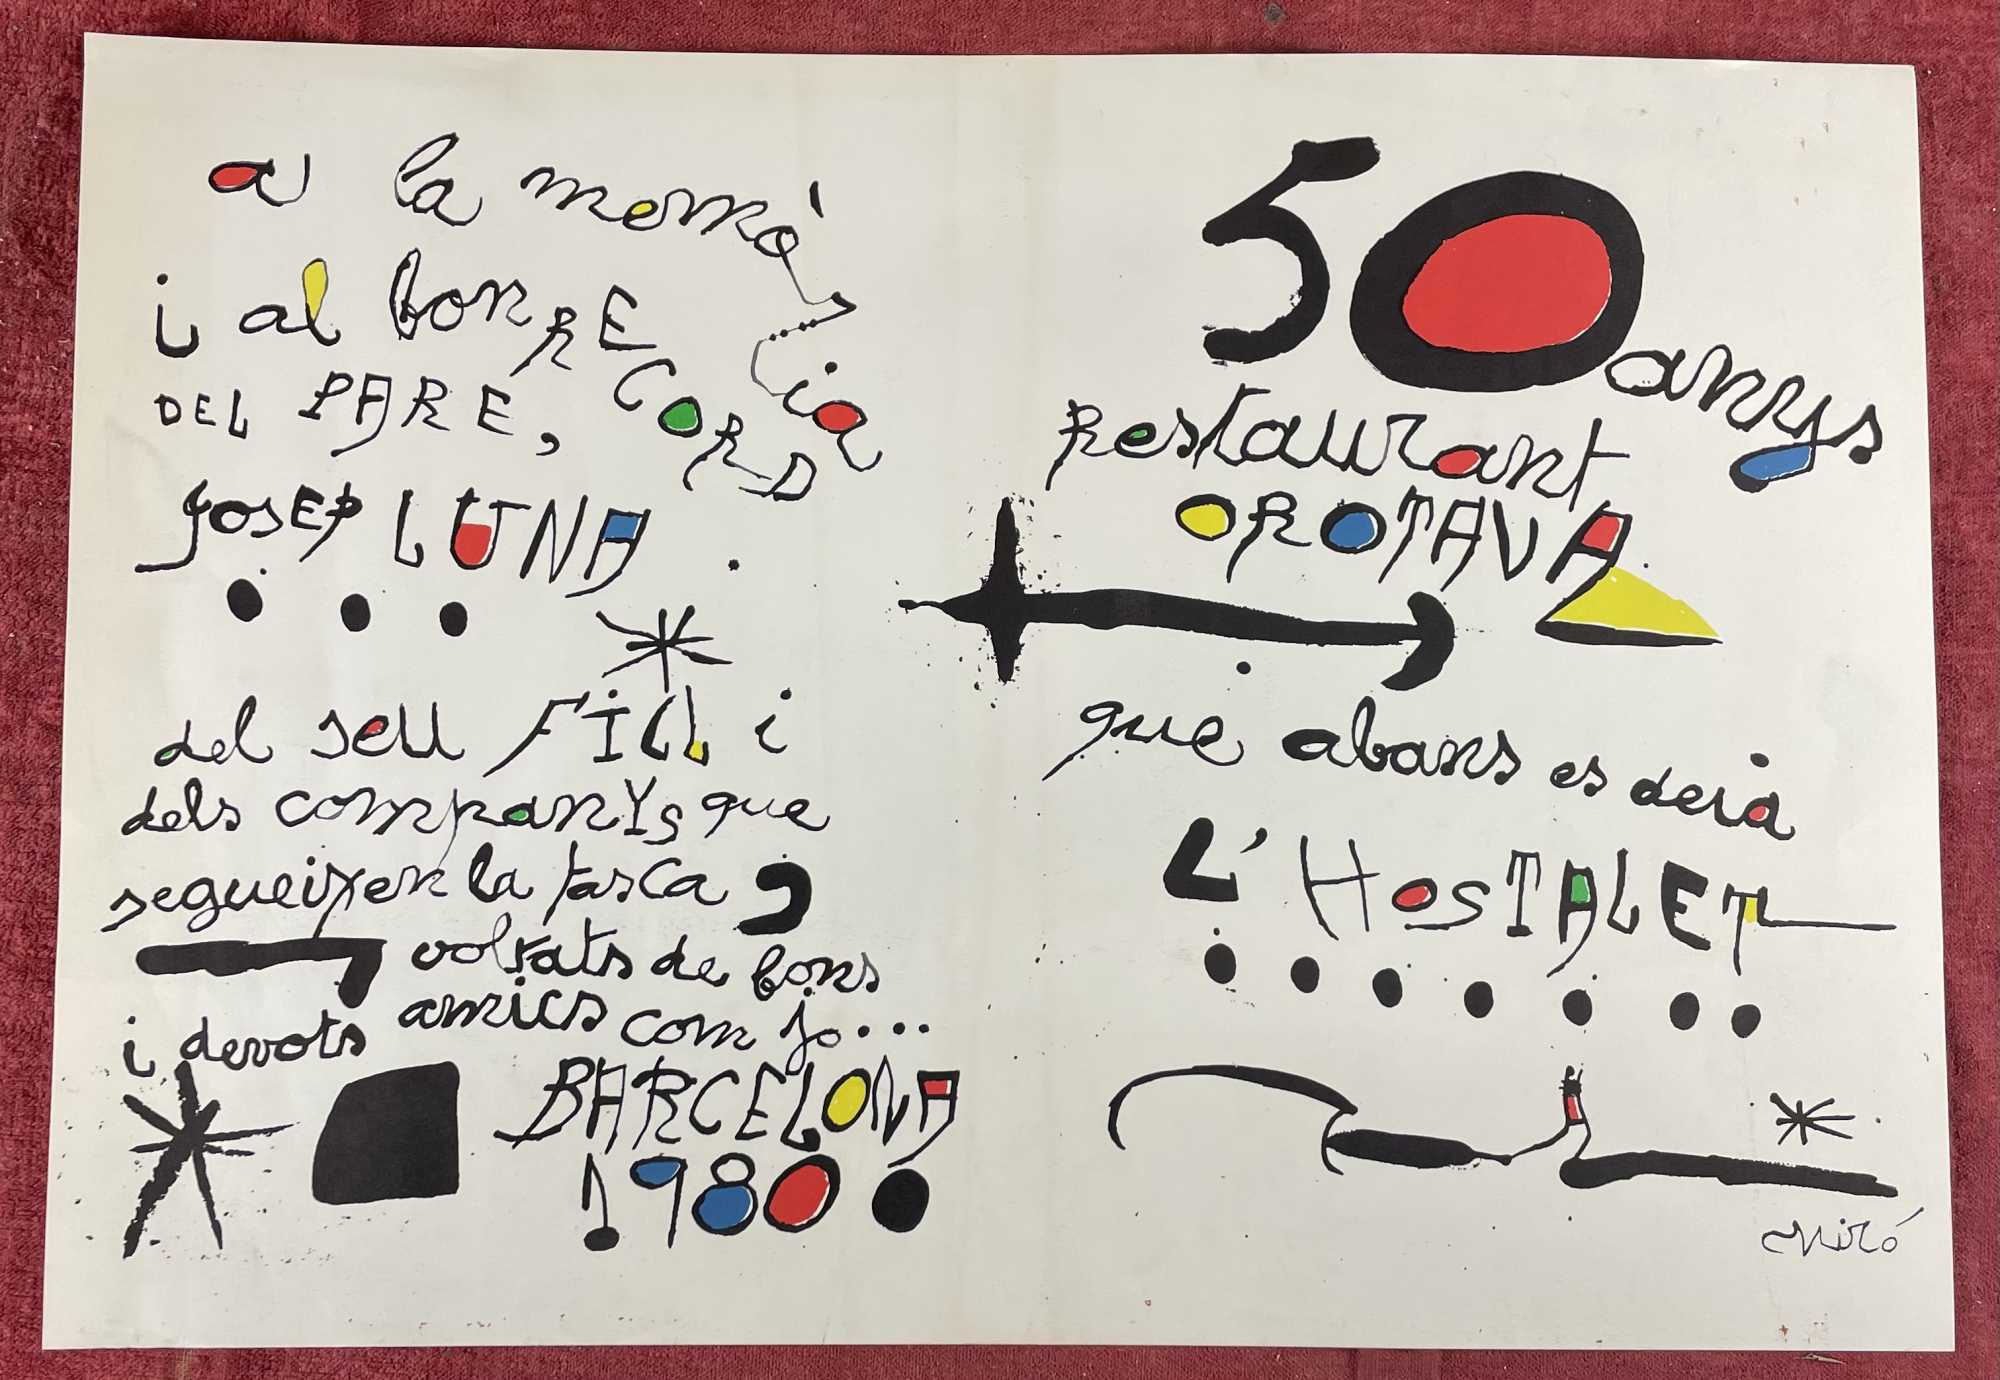 a la memòria
i al bon RECORD
DEL PARE,
JOSEP LUNA
del seu FILL i
dels companys que
segueixen la tasca
voltats de bons
i devots amics com jo...
BARCELONA
1980
50 anys
Restaurant
OROTAVA
que abans es deia
L'HOSTALET
Miró